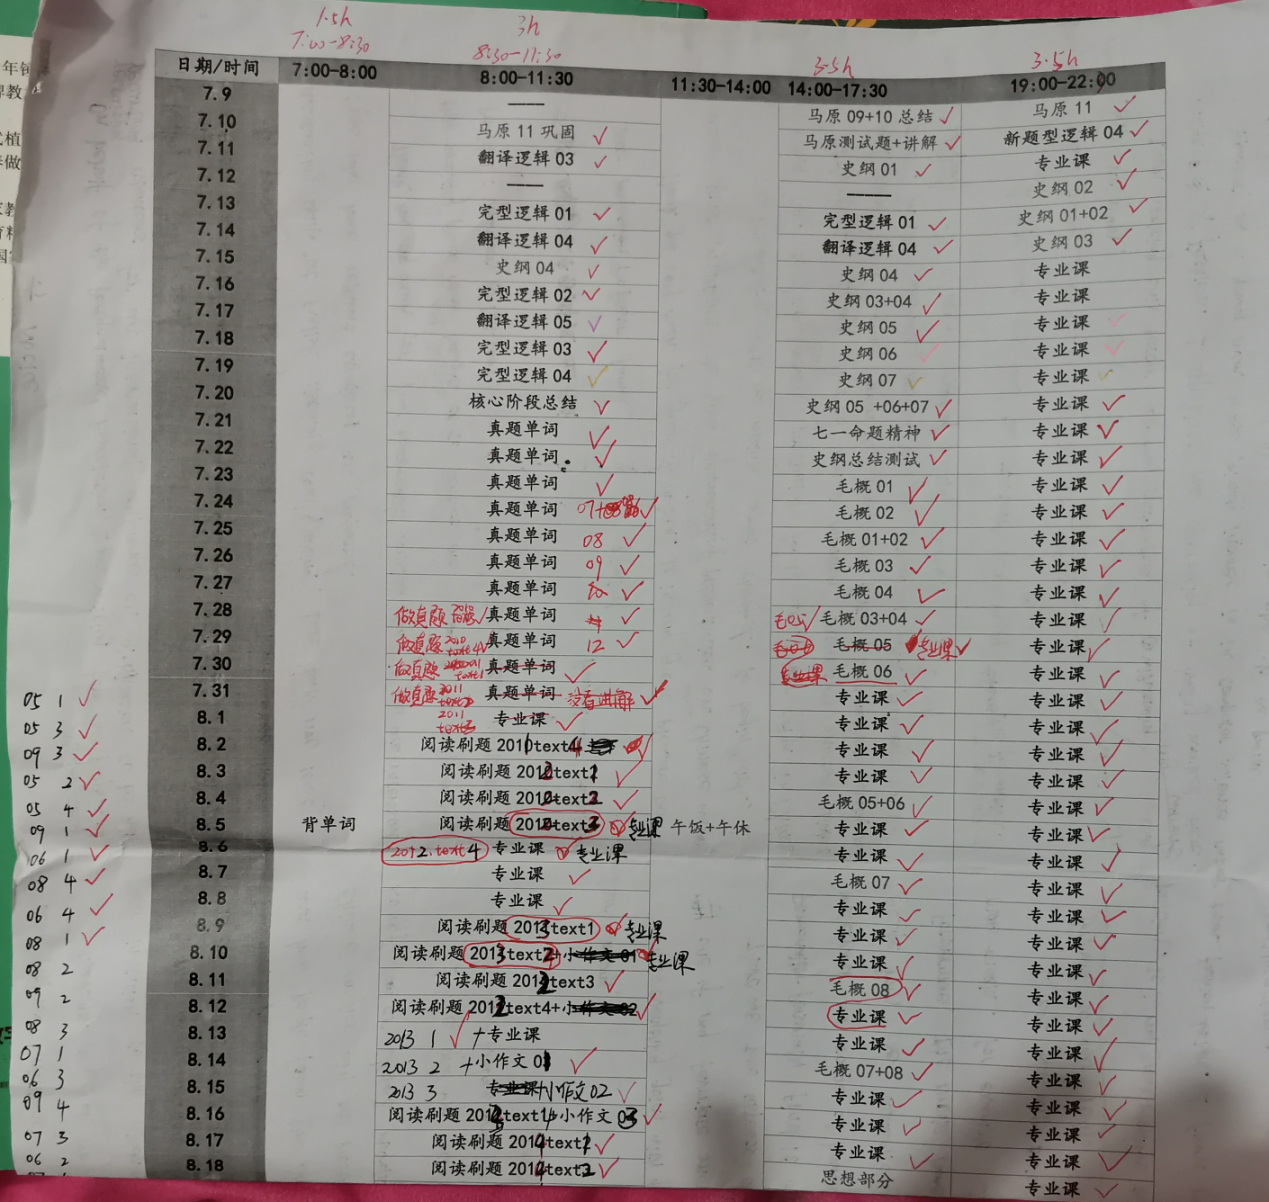 1.5h 3h
7:00-8:30 8:30-11:30 3.5h 3.5h
日期/时间 7:00-8:00 8:00-11:30 11:30-14:00 14:00-17:30 19:00-22:00
7.9 —— 马原 09+10 总结 马原 11
7.10 马原 11 巩固 马原测试题+讲解 新题型逻辑 04
7.11 翻译逻辑 03 史纲 01 专业课
7.12 —— —— 史纲 02
7.13 完型逻辑 01 完型逻辑 01 史纲 01+02
7.14 翻译逻辑 04 翻译逻辑 04 史纲 03
7.15 史纲 04 史纲 04 专业课
7.16 完型逻辑 02 史纲 03+04 专业课
7.17 翻译逻辑 05 史纲 05 专业课
7.18 完型逻辑 03 史纲 06 专业课
7.19 完型逻辑 04 史纲 07 专业课
7.20 核心阶段总结 史纲 05 +06+07 专业课
7.21 真题单词 七一命题精神 专业课
7.22 真题单词 史纲总结测试 专业课
7.23 真题单词 毛概 01 专业课
7.24 真题单词 07+ 毛概 02 专业课
7.25 真题单词 08 毛概 01+02 专业课
7.26 真题单词 09 毛概 03 专业课
7.27 真题单词 毛概 04 专业课
7.28 做真题 真题单词 毛概 03+04 专业课
7.29 做真题 2010 text4 真题单词 12 毛概 05 专业课 专业课
7.30 做真题 text1 真题单词 专业课 毛概 06 专业课
7.31 做真题 2011 真题单词 没看讲解 专业课 专业课
8.1 2011 text3 专业课 专业课 专业课
8.2 阅读刷题 2011text4 专业课 专业课
8.3 阅读刷题 2012text1 专业课 专业课
8.4 阅读刷题 2012text2 毛概 05+06 专业课
8.5 背单词 阅读刷题 2012text3 专业课 午饭+午休 专业课 专业课
8.6 2012.text4 专业课 专业课 专业课 专业课
8.7 专业课 毛概 07 专业课
8.8 专业课 专业课 专业课
8.9 阅读刷题 2013text1 专业课 专业课 专业课
8.10 阅读刷题 2013text2+小作文 01 专业课 专业课 专业课
8.11 阅读刷题 2012text3 毛概 08 专业课
8.12 阅读刷题 2012text4+小作文 02 专业课 专业课
8.13 2013 1 +专业课 专业课 专业课
8.14 2013 2 +小作文 01 毛概 07+08 专业课
8.15 2013 3 专业课+小作文 02 专业课 专业课
8.16 阅读刷题 2013text4+小作文 03 专业课 专业课
8.17 阅读刷题 2014text1 专业课 专业课
8.18 阅读刷题 2014text2 思想部分 专业课
专业课
05 1
05 3
09 3
05 2
05 4
09 1
06 1
08 4
06 4
08 1
08 2
09 2
08 3
07 1
06 3
09 4
07 3
06 2